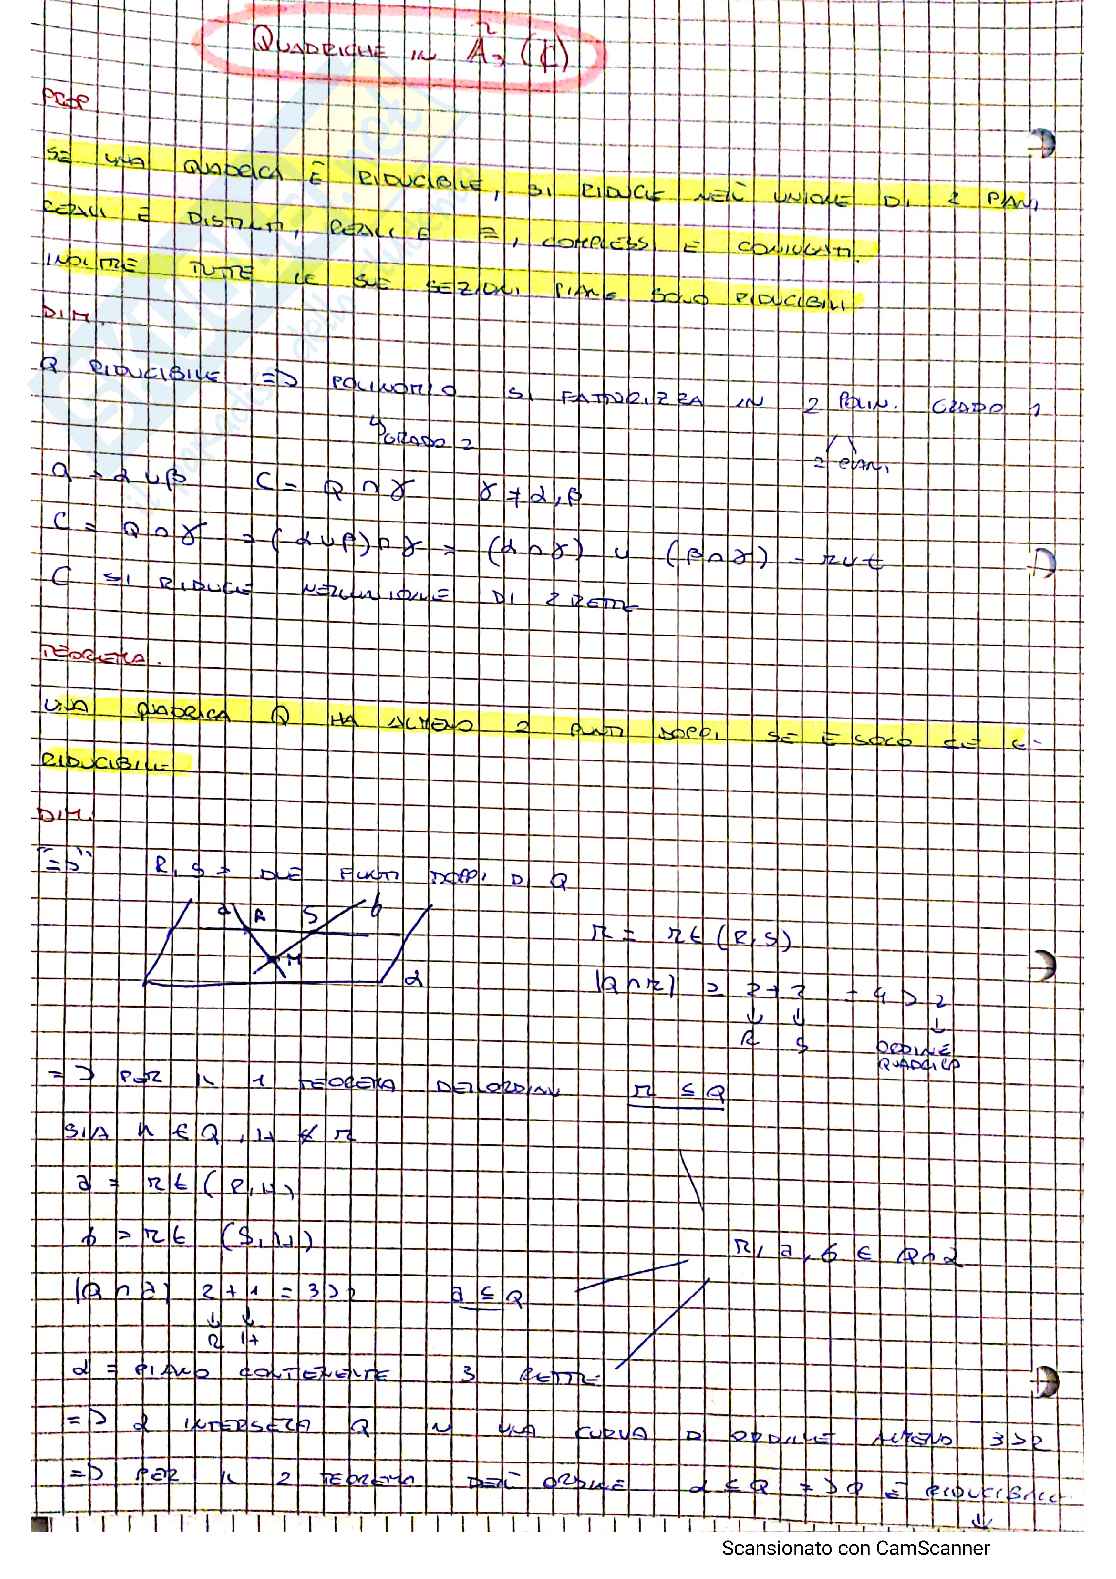 QUADRICHE IN Ã₃ (ℂ)
PROP
SE UNA QUADRICA È RIDUCIBILE, SI RIDUCE NELL' UNIONE DI 2 PIANI
REALI E DISTINTI, REALI E ≡, COMPLESSI E CONIUGATI.
INOLTRE TUTTE LE SUE SEZIONI PIANE SONO RIDUCIBILI
DIM.
Q RIDUCIBILE => POLINOMIO SI FATTORIZZA IN 2 POLIN. GRADO 1
↳ GRADO 2
2 PIANI
Q = α ∪ β C = Q ∩ γ γ ≠ α, β
C = Q ∩ γ = (α ∪ β) ∩ γ = (α ∩ γ) ∪ (β ∩ γ) = r ∪ t
C SI RIDUCE NELL'UNIONE DI 2 RETTE
TEOREMA.
UNA QUADRICA Q HA ALMENO 2 PUNTI DOPPI SE E SOLO SE È
RIDUCIBILE
DIM.
"=>" R, S → DUE PUNTI DOPPI DI Q
a R S b
H
α
r = rt (R, S)
|Q ∩ r| ≥ 2 + 2 = 4 > 2
↓ ↓ ↓
R S ORDINE
QUADRICA
=> PER IL 1 TEOREMA DELL'ORDINE r ⊆ Q
SIA H ∈ Q, H ∉ r
a = rt (R, H)
b = rt (S, H)
r, a, b ∈ Q ∩ α
|Q ∩ a| 2 + 1 = 3 > 2 a ⊆ Q
↓ ↓
R H
α = PIANO CONTENENTE 3 RETTE
=> α INTERSECA Q IN UNA CURVA DI ORDINE ALMENO 3 > 2
=> PER IL 2 TEOREMA DELL' ORDINE α ⊆ Q => Q È RIDUCIBILE
↓
Scansionato con CamScanner